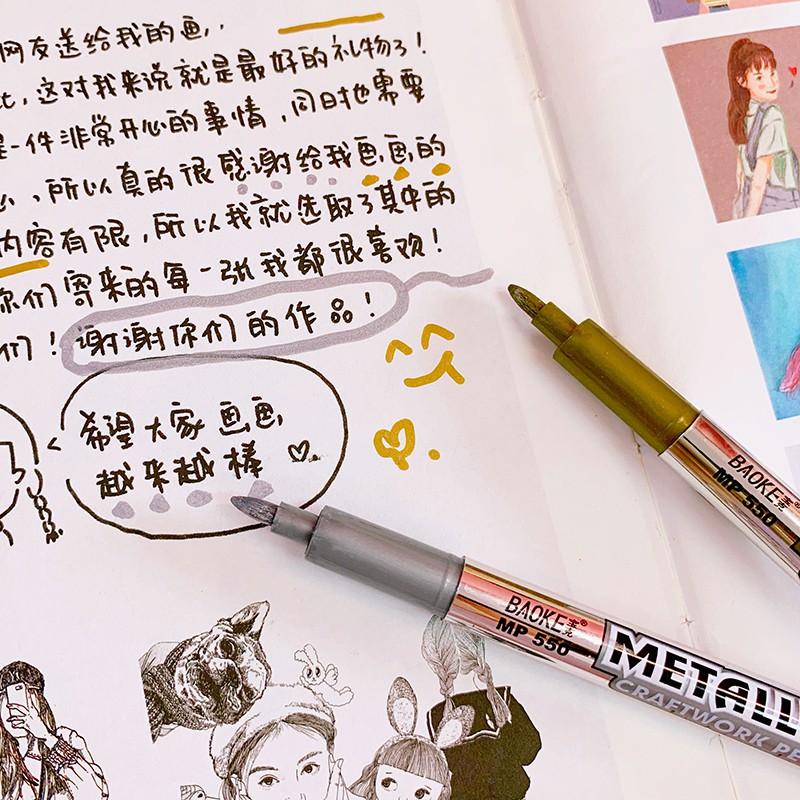 网友送给我的画,.
，这对我来说就是最好的礼物了！
是一件非常开心的事情，同时也需要
心、所以真的很感谢给我画画的
内容有限，所以我就选取了其中的
你们寄来的每一张我都很喜欢！
们！谢谢你们的作品！
希望大家画画，
越来越棒
BAOKE宝克®
MP 550
BAOKE宝克®
MP 550
METALL
CRAFTWORK PE